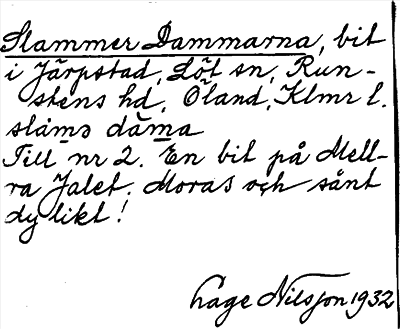 Slammer Dammarna, bit
i Järpstad, Löt sn, Run-
stens hd, Öland, Klmr l.
slämə däma
Till nr 2. En bit på Mell-
ra Jalet. Moras och sånt
dylikt!
Lage Nilsson 1932